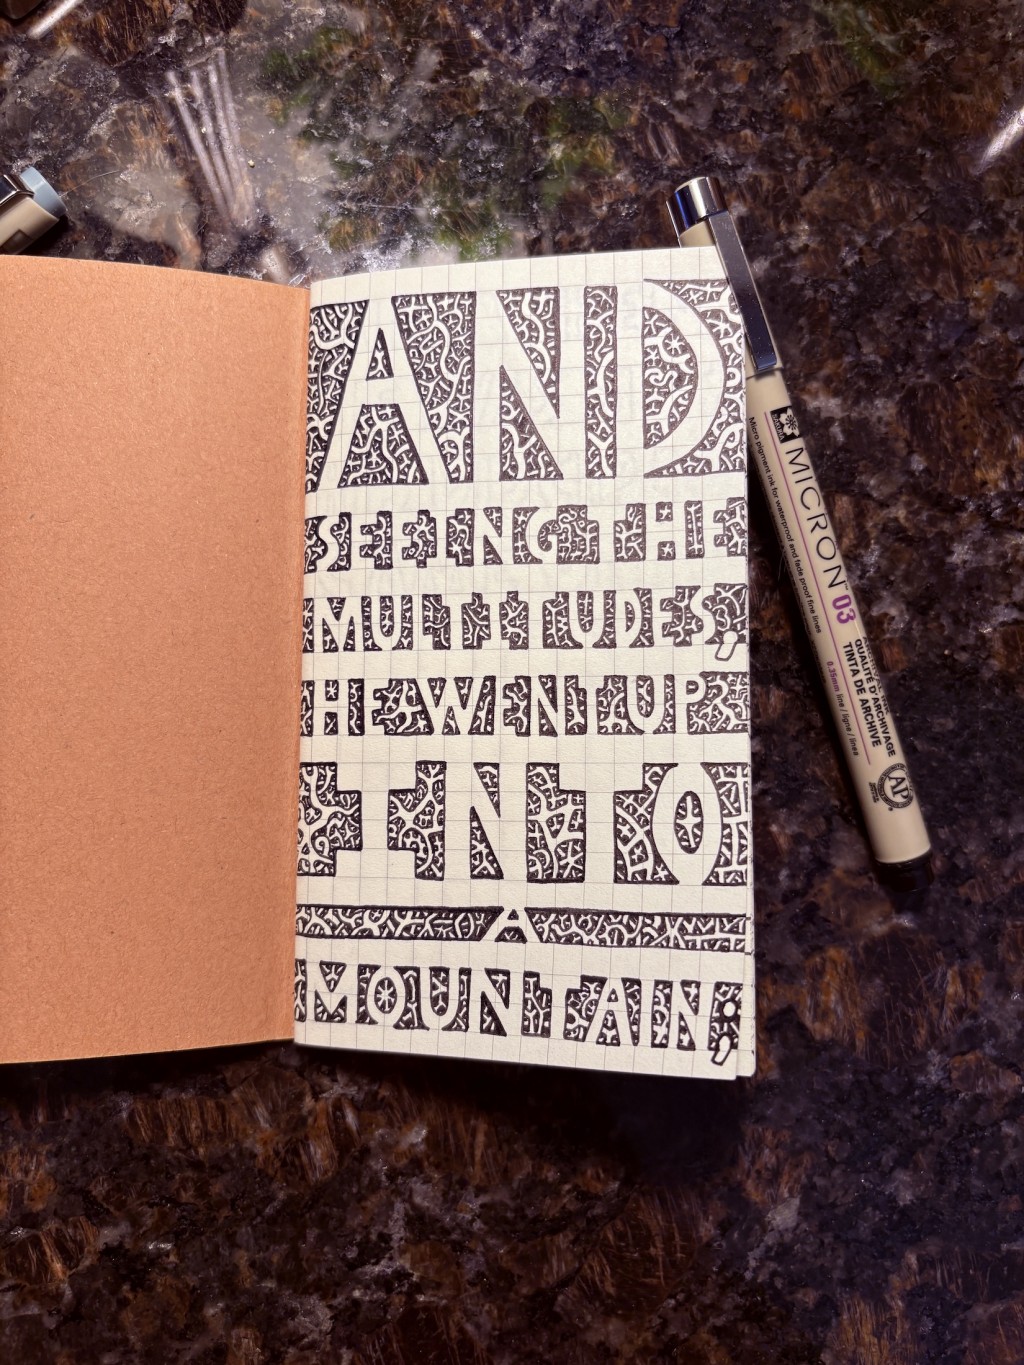 AND
SEEING THE
MULTITUDES,
HE WENT UP
INTO
A
MOUNTAIN;
MICRON™ 03
Micro pigment ink for waterproof and fade proof fine lines
0.35mm line / ligne / línea
QUALITÉ D'ARCHIVAGE
TINTA DE ARCHIVE
AP